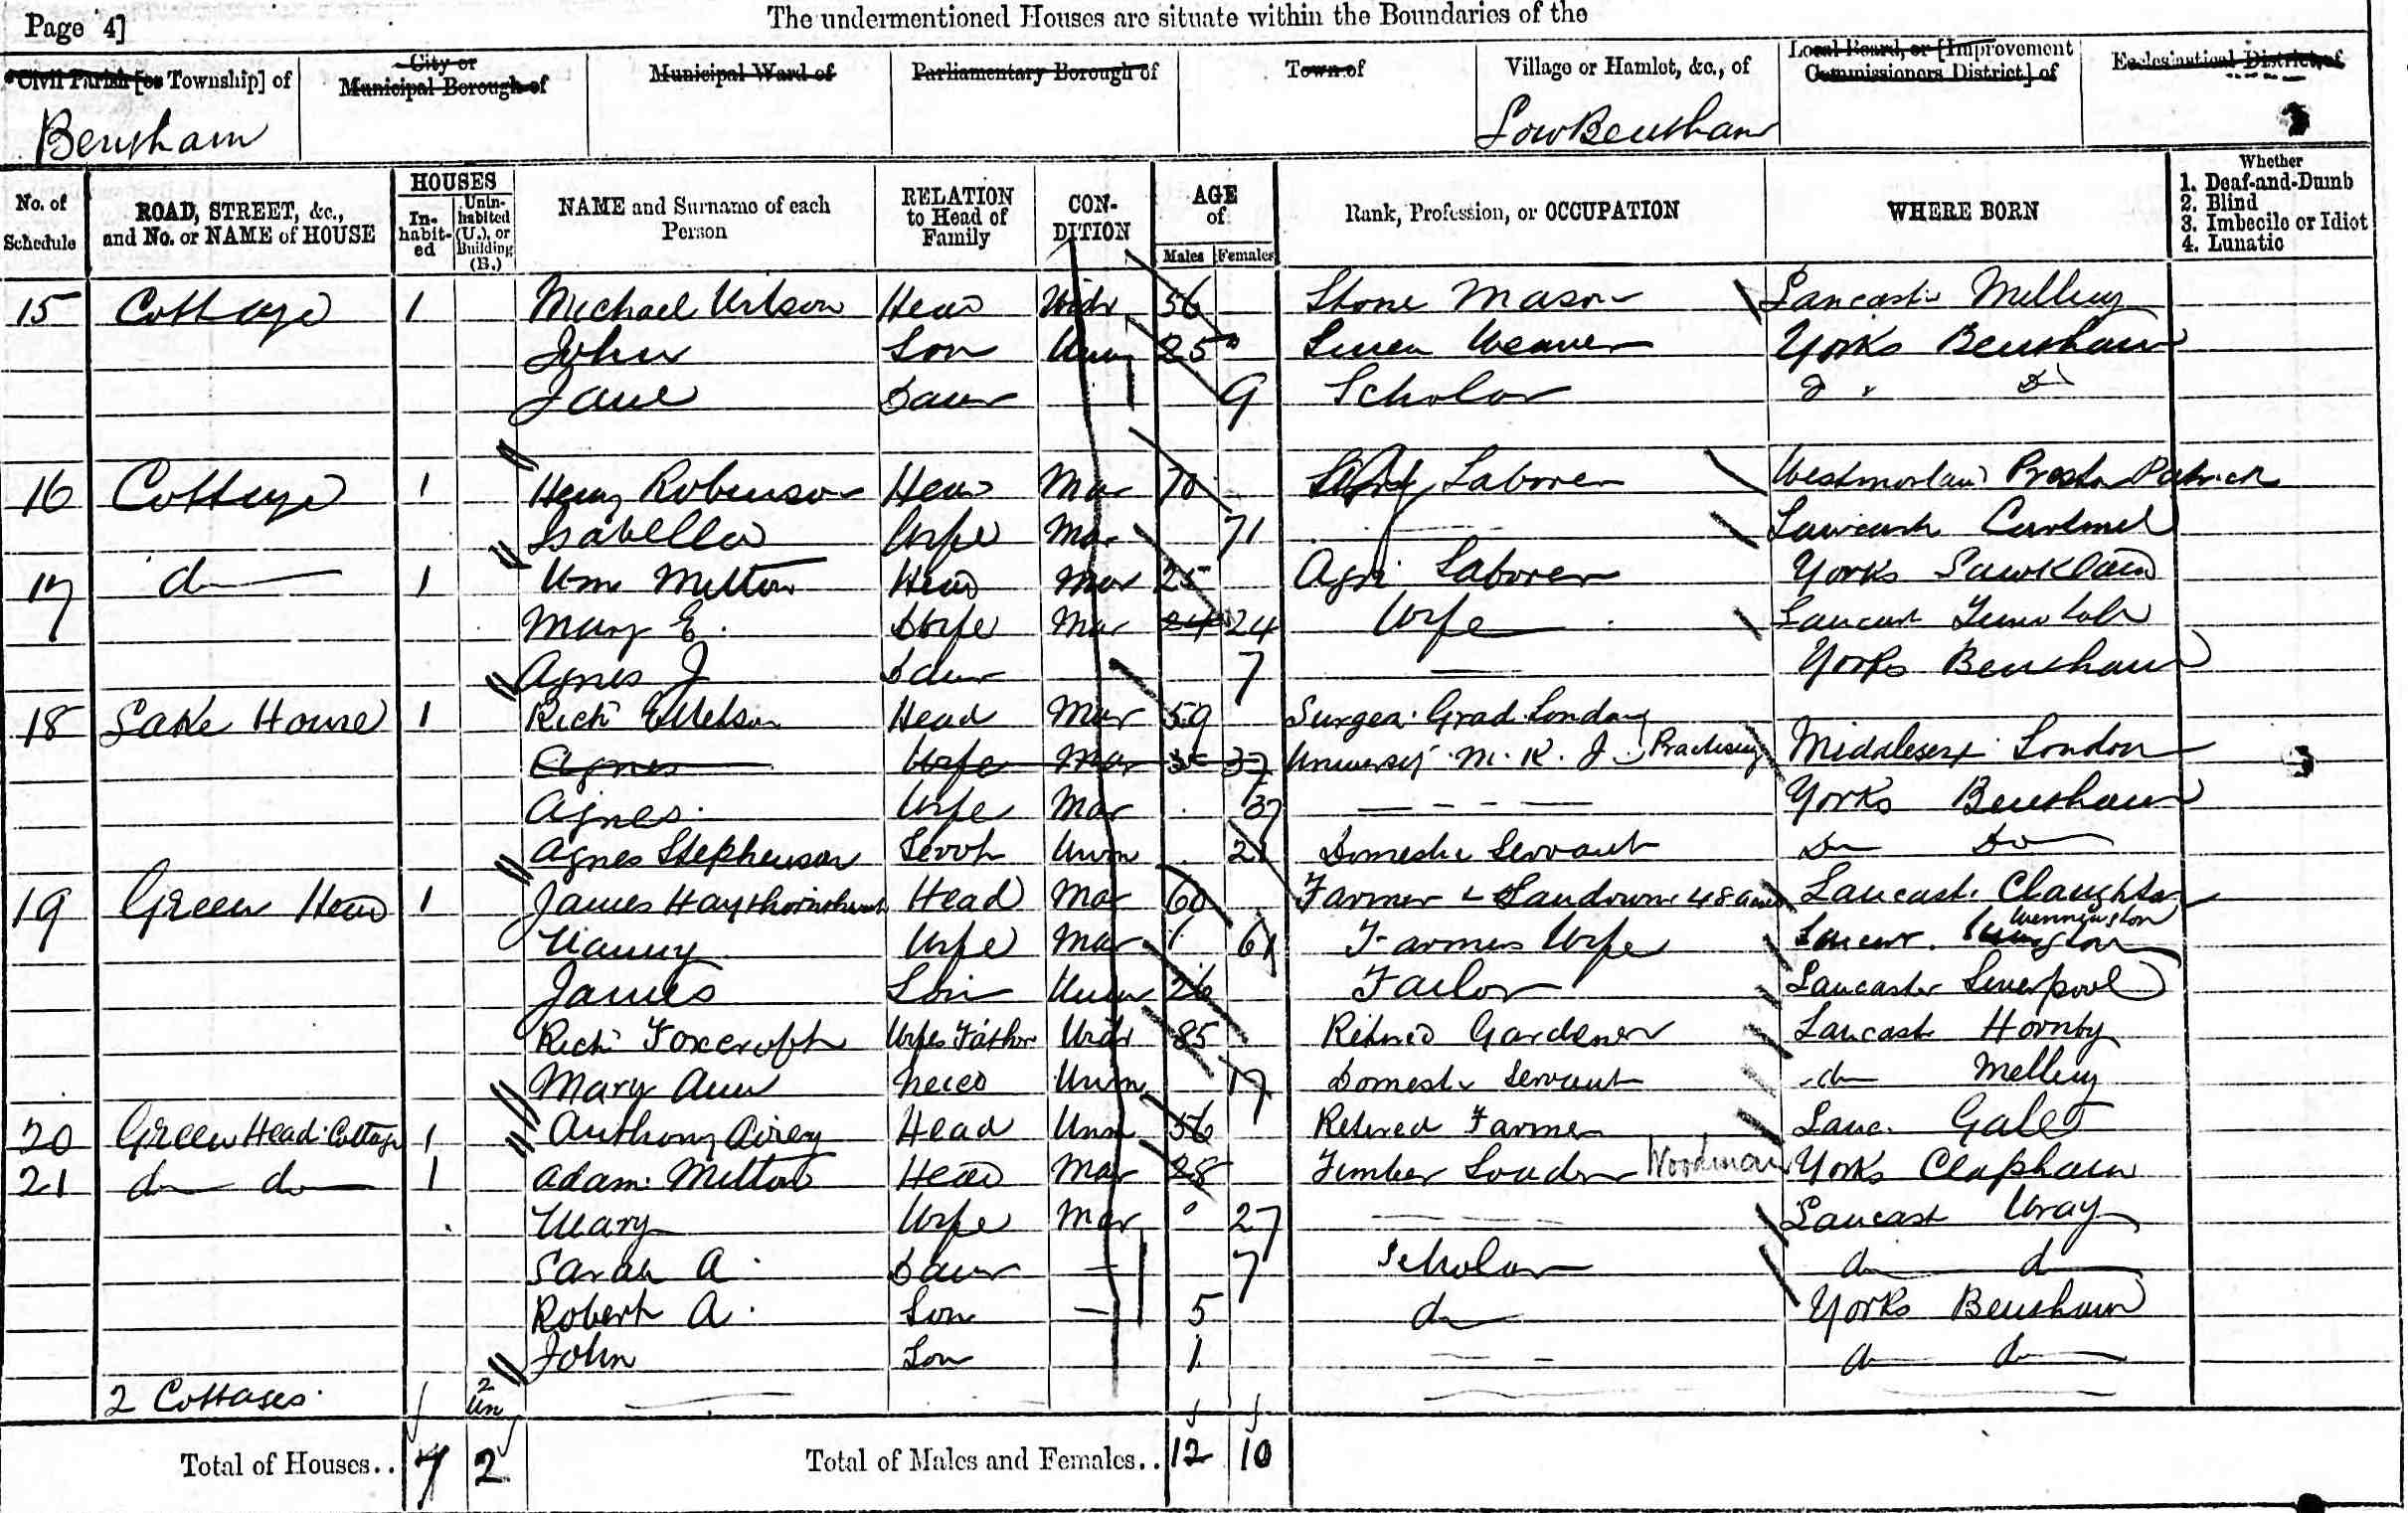 Page 4]
The undermentioned Houses are situate within the Boundaries of the
Civil Parish [or Township] of
City or Municipal Borough of
Municipal Ward of
Parliamentary Borough of
Town of
Village or Hamlet, &c., of
Local Board, or [Improvement Commissioners District] of
Ecclesiastical District of
Bentham
Low Bentham
No. of Schedule
ROAD, STREET, &c., and No. or NAME of HOUSE
HOUSES
In-habit-ed
Unin-habited (U.), or Building (B.)
NAME and Surname of each Person
RELATION to Head of Family
CON-DITION
AGE of
Males Females
Rank, Profession, or OCCUPATION
WHERE BORN
Whether
1. Deaf-and-Dumb
2. Blind
3. Imbecile or Idiot
4. Lunatic
15 Cottage 1 Michael Wilson Head Widr 56 Stone Mason Lancastr Melling
John Son Unm 25 Linen Weaver Yorks Bentham
Jane Daur 9 Scholar Do Do
16 Cottage 1 Henry Robinson Head Mar 70 Laborer Westmorland Preston Patrick
Isabella Wife Mar 71 Lancash Cartmel
17 do 1 Wm Mitton Head Mar 25 Agri Laborer Yorks Lawkland
Mary E. Wife Mar 24 24 Wife Lancast
Agnes J Daur 7 Yorks Bentham
18 Lake House 1 Richd Ellelson Head Mar 59 Surgeo. Grad. London
Agnes Wife Mar 37 University M. R. Practising Middlesex London
Agnes Wife Mar 37 Yorks Bentham
Agnes Stephenson Servt Unm 21 Domestic Servant Do Do
19 Green Head 1 James Haythornthwait Head Mar 60 Farmer & Landowner 48 acres Lancast. Claughton
Nanny Wife Mar 61 Farmers Wife Lancas. Wennington
James Son Unm 26 Tailor Lancaster Liverpool
Richd Foxcroft Wifes Father Widr 85 Retired Gardener Lancash Hornby
Mary Ann Neice Unm 17 Domestic Servant do Melling
20 Green Head Cottage 1 Anthony Airey Head Unm 56 Retired Farmer Lanc.
21 do do 1 Adam Mitton Head Mar 28 Timber Leader Woodman Yorks Clapham
Mary Wife Mar 27 Lancash Wray
Sarah A. Daur 7 Scholar do do
Robert A. Son 5 do Yorks Bentham
John Son 1 do do
2 Cottages 2 Un
Total of Houses.. 7 2 Total of Males and Females.. 12 10